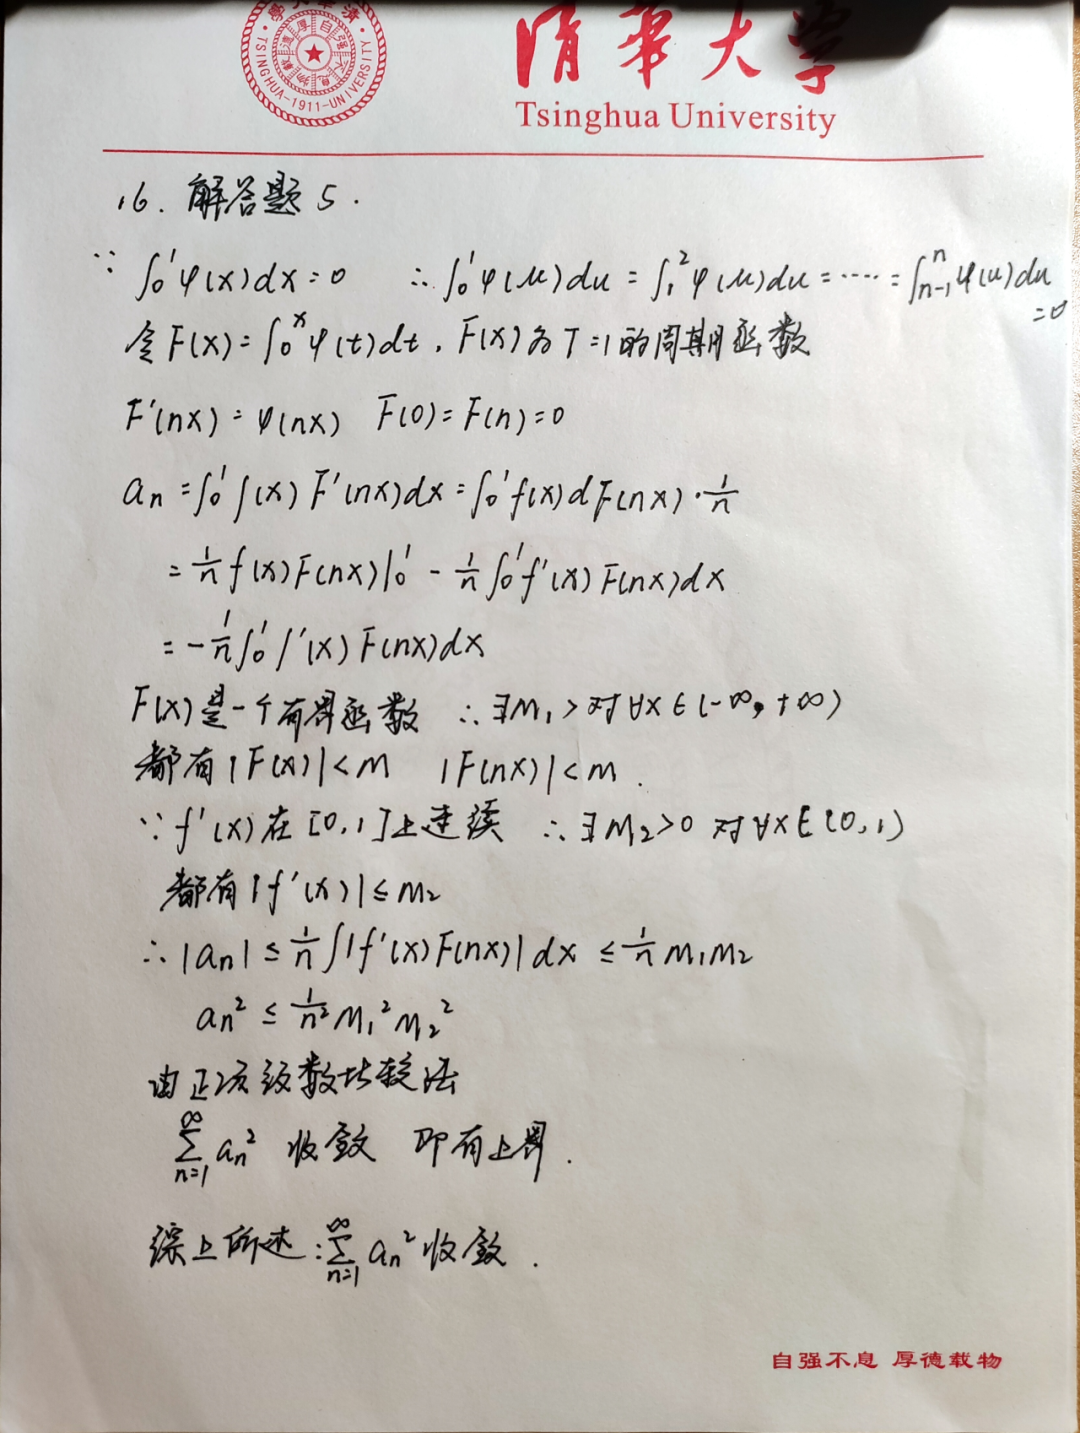 清華大學
TSINGHUA-1911-UNIVERSITY
自强不息
Tsinghua University
16. 解答题 5.
∵ ∫₀¹ φ(x)dx=0 ∴ ∫₀¹ φ(u)du = ∫₁² φ(u)du = ····· = ∫ₙ₋₁ⁿ φ(u)du
=0
令 F(x)=∫₀ˣ φ(t)dt, F(x)为T=1的周期函数
F'(nx)=φ(nx) F(0)=F(n)=0
aₙ =∫₀¹ f(x) F'(nx)dx=∫₀¹ f(x)dF(nx)·1/n
= 1/n f(x)F(nx)|₀¹ - 1/n ∫₀¹ f'(x) F(nx)dx
= -1/n ∫₀¹ f'(x) F(nx)dx
F(x)是一个有界函数 ∴ ∃M₁> 对∀x∈(-∞, +∞)
都有|F(x)|<M |F(nx)|<M.
∵ f'(x)在[0,1]上连续 ∴ ∃M₂>0 对∀x∈(0,1)
都有|f'(x)|≤M₂
∴ |aₙ| ≤ 1/n ∫|f'(x)F(nx)|dx ≤ 1/n M₁M₂
aₙ² ≤ 1/n² M₁²M₂²
由正项级数比较法
∑ₙ₌₁^∞ aₙ² 收敛 即有上界.
综上所述: ∑ₙ₌₁^∞ aₙ² 收敛.
自强不息 厚德载物